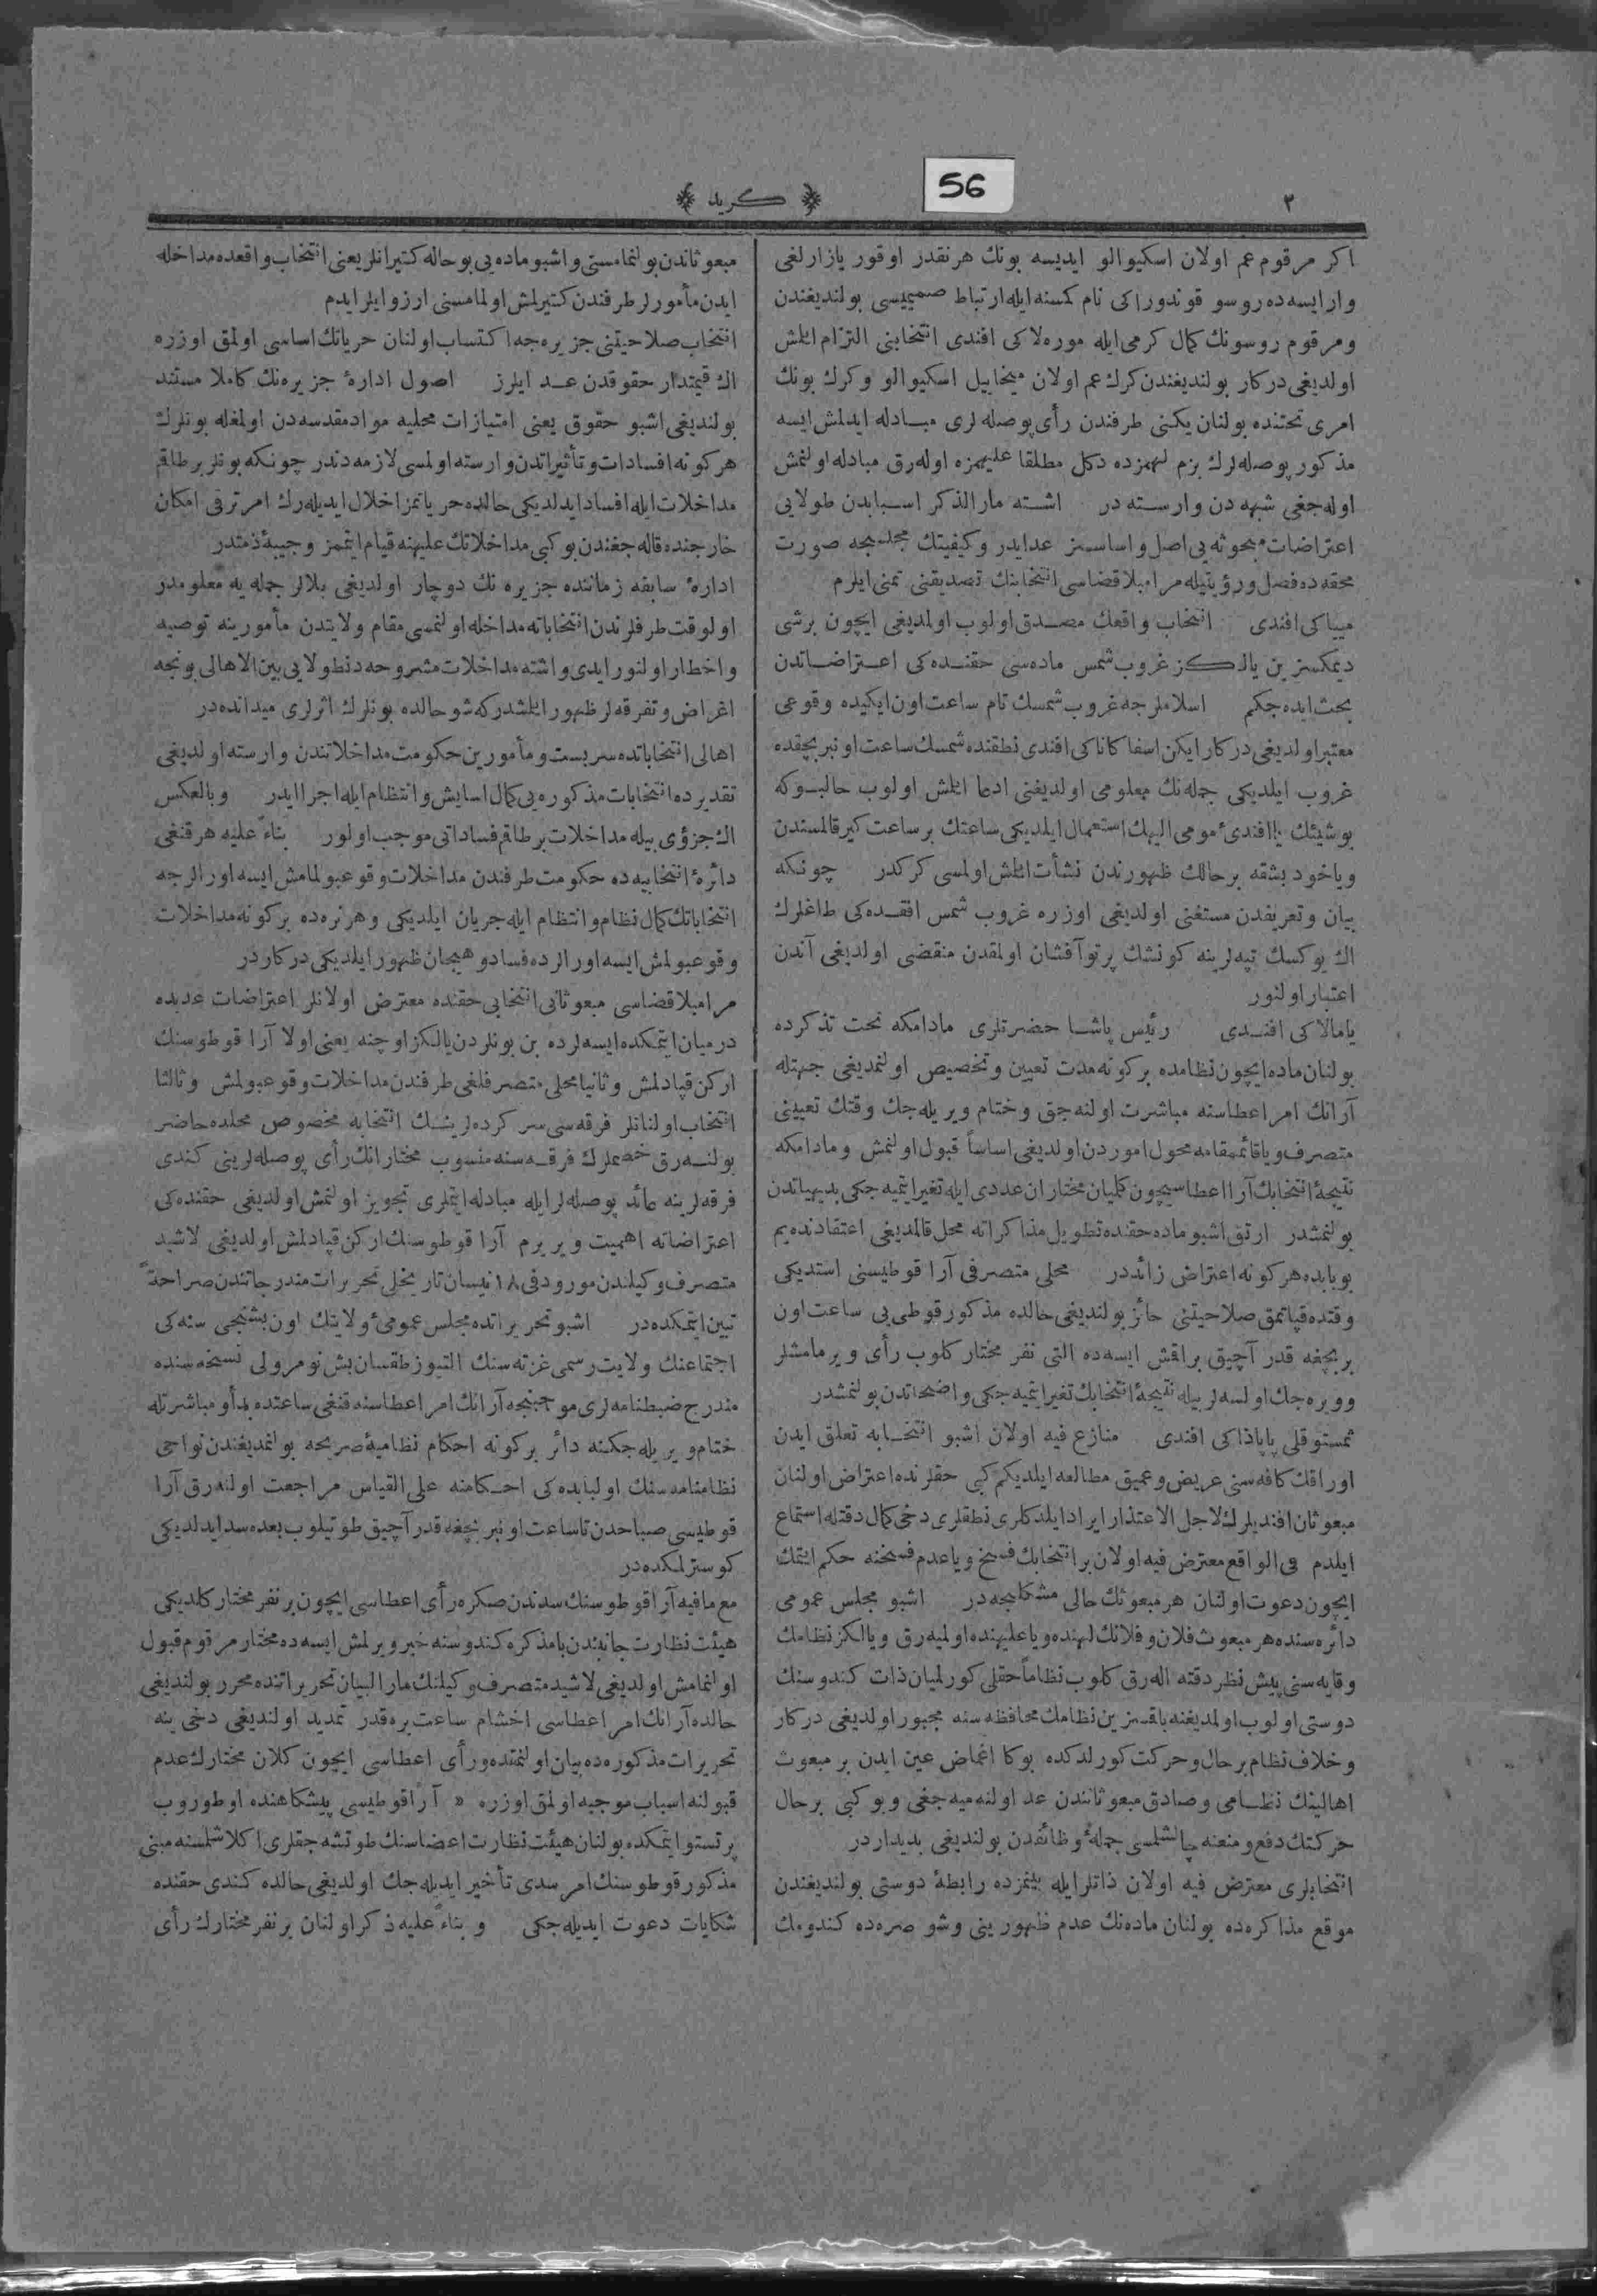 56
٢
﴿ كريد ﴾
اكر مرقوم عم اولان اسكيوالو ايديسه بونك هرنقدر اوقور يازارلغى
وار ايسه ده روسو قوندوراكى نام كمسنه ايله ارتباط صميميسى بولنديغندن
ومرقوم روسونك كمال كرمى ايله موره لاكى افندى انتخابنى التزام ايلش
اولديغى دركار بولنديغندن كرك عم اولان ميخاييل اسكيوالو وكرك بونك
امرى تحتنده بولنان يكنى طرفندن رأى پوصله لرى مبادله ايدلمش ايسه
مذكور پوصله لرك بزم لهمزده دكل مطلقا عليهمزه اوله رق مبادله اولنمش
اوله جغى شبهه دن وارسته در اشته مارالذكر اسبابدن طولايى
اعتراضات مبحوثه يى اصل و اساسسز عد ايدر وكيفيتك مجلسجه صورت
محقه ده فصل ورؤيتيله مرامبلا قضاسى انتخابنك تصديقنى تمنى ايلرم
ميياكى افندى انتخاب واقعك مصدق اولوب اولمديغى ايچون برشى
ديمكسزين يالكز غروب شمس ماده سى حقنده كى اعتراضاتدن
بحث ايده جكم اسلاملرجه غروب شمسك تام ساعت اون ايكيده وقوعى
معتبر اولديغى دركار ايكن اسفاكاناكى افندى نطقنده شمسك ساعت اونبر بچقده
غروب ايلديكى جمله نك معلومى اولديغنى ادعا ايلش اولوب حالبوكه
بوشيئك يا افندىء مومى اليهك استعمال ايلديكى ساعتك برساعت كيرقالمسندن
وياخود بشقه برحالك ظهورندن نشأت ايلش اولمسى كركدر چونكه
بيان وتعريفدن مستغنى اولديغى اوزره غروب شمس افقده كى طاغلرك
اك يوكسك تپه لرينه كونشك پرتو آفشان اولمقدن منقضى اولديغى آندن
اعتبار اولنور
يامالاكى افندى رئيس پاشا حضرتلرى مادامكه تحت تذكرده
بولنان ماده ايچون نظامده بركونه مدت تعيين وتخصيص اولنمديغى جهتله
آرانك امر اعطاسنه مباشرت اولنه جق وختام ويريله جك وقتك تعيينى
متصرف ويا قائمقامه محول اموردن اولديغى اساساً قبول اولنمش ومادامكه
نتيجۀ انتخابك آرا اعطاسيچون كليان مختاران عددى ايله تغير ايتميه جكى بديهياتدن
بولنمشدر ارتق اشبو ماده حقنده تطويل مذاكراته محل قالمديغى اعتقادنده يم
بوبابده هركونه اعتراض زائددر محلى متصرفى آرا قوطيسنى استديكى
وقتده قپاتمق صلاحيتنى حائز بولنديغى حالده مذكور قوطى يى ساعت اون
بربچغه قدر آچيق براقش ايسه ده التى نفر مختار كلوب رأى ويرمامشلر
وويره جك اولسه لر بيله نتيجۀ انتخابك تغير ايتميه جكى واضحاتدن بولنمشدر
ثمستوقلى پاپاذاكى افندى منازع فيه اولان اشبو انتخابه تعلق ايدن
اوراقك كافه سنى عريض وعميق مطالعه ايلديكم كبى حقلرنده اعتراض اولنان
مبعوثان افنديلرك لاجل الاعتذار ايراد ايلدكلرى نطقلرى دخى كمال دقتله استماع
ايلدم فى الواقع معترض فيه اولان بر انتخابك فسخ ويا عدم فسخنه حكم ايتمك
ايچون دعوت اولنان هر مبعوثك حالى مشكلجه در اشبو مجلس عمومى
دائره سنده هر مبعوث فلان وفلانك لهنده ويا عليهنده اولميه رق ويالكز نظامك
وقايه سنى پيش نظر دقته اله رق كلوب نظاماً حقلى كورلميان ذات كندوسنك
دوستى اولوب اولمديغنه باقمسزين نظامك محافظه سنه مجبور اولديغى دركار
وخلاف نظام برحال وحركت كورلدكده بوكا اغماض عين ايدن بر مبعوث
اهالينك نظامى وصادق مبعوثانندن عد اولنه ميه جغى وبوكبى برحال
حركتك دفع ومنعنه چالشلمسى جملۀ وظائفدن بولنديغى بديداردر
انتخابلرى معترض فيه اولان ذاتلر ايله بينمزده رابطۀ دوستى بولنديغندن
موقع مذاكره ده بولنان ماده نك عدم ظهورينى وشو صره ده كندومك
مبعوثاندن بولنمامسنى واشبو ماده يى بوحاله كتيرانلر يعنى انتخاب واقعده مداخله
ايدن مأمورلر طرفندن كتيرلمش اولمامسنى ارزو ايلر ايدم
انتخاب صلاحيتنى جزيره جه اكتساب اولنان حرياتك اساسى اولمق اوزره
اك قيمتدار حقوقدن عد ايلرز اصول ادارۀ جزيره نك كاملا مستند
بولنديغى اشبو حقوق يعنى امتيازات محليه مواد مقدسه دن اولمغله بونلرك
هركونه افسادات وتأثيراتدن وارسته اولمسى لازمه دندر چونكه بونلر برطاقم
مداخلات ايله افساد ايدلديكى حالده حرياتمز اخلال ايديله رك امر ترقى امكان
خارجنده قاله جغندن بوكبى مداخلاتك عليهنه قيام ايتمز وجيبۀ ذمتدر
ادارۀ سابقه زماننده جزيره نك دوچار اولديغى بلالر جمله يه معلومدر
اولوقت طرفلرندن انتخاباته مداخله اولنمسى مقام ولايتدن مأمورينه توصيه
واخطار اولنور ايدى واشته مداخلات مشروحه دنطولايى بين الاهالى بونجه
اغراض وتفرقه لر ظهور ايلمشدركه شو حالده بونلرك اثرلرى ميدانده در
اهالى انتخاباتده سربست ومأمورين حكومت مداخلاتندن وارسته اولديغى
تقديرده انتخابات مذكوره يى كمال اسايش وانتظام ايله اجرا ايدر وبالعكس
اك جزؤى بيله مداخلات برطاقم فساداتى موجب اولور بناءً عليه هرقنغى
دائرۀ انتخابيه ده حكومت طرفندن مداخلات وقوعبولمامش ايسه اورالرجه
انتخاباتك كمال نظام وانتظام ايله جريان ايلديكى وهرنره ده بركونه مداخلات
وقوعبولمش ايسه اورالرده فساد وهيجان ظهور ايلديكى دركاردر
مرامبلا قضاسى مبعوثانى انتخابى حقنده معترض اولانلر اعتراضات عديده
درميان ايتمكده ايسه لرده بن بونلردن يالكز اوچنه يعنى اولا آرا قوطوسنك
اركن قپادلمش وثانيا محلى متصرفلغى طرفندن مداخلات وقوعبولمش وثالثا
انتخاب اولنانلر فرقه سى سركرده لرينك انتخابه مخصوص محلده حاضر
بولنه رق خصملرك فرقه سنه منسوب مختارانك رأى پوصله لرينى كندى
فرقه لرينه عائد پوصله لر ايله مبادله ايتملرى تجويز اولنمش اولديغى حقنده كى
اعتراضاته اهميت ويررم آرا قوطوسنك اركن قپادلمش اولديغى لاشيد
متصرف وكيلندن مورود فى ١٨ نيسان تاريخلى تحريرات مندرجاتندن صراحةً
تبين ايتمكده در اشبو تحريراتده مجلس عمومىء ولايتك اون بشنجى سنه كى
اجتماعنك ولايت رسمى غزته سنك التيوز طقسان بش نومرولى نسخه سنده
مندرج ضبطنامه لرى موجبنجه آرانك امر اعطاسنه قنغى ساعتده بدأ ومباشرتله
ختام ويريله جكنه دائر بركونه احكام نظاميۀ صريحه بولنمديغندن نواحى
نظامنامه سنك اولبابده كى احكامنه على القياس مراجعت اولنه رق آرا
قوطيسى صباحدن تا ساعت اونبر بچغه قدر آچيق طوتيلوب بعده سد ايدلديكى
كوسترلمكده در
مع مافيه آرا قوطوسنك سدندن صكره رأى اعطاسى ايچون برنفر مختار كلديكى
هيئت نظارت جانبندن بامذكره كندوسنه خبر ويرلمش ايسه ده مختار مرقوم قبول
اولنمامش اولديغى لاشيد متصرف وكيلنك مارالبيان تحريراتنده محرر بولنديغى
حالده آرانك امر اعطاسى اخشام ساعت بره قدر تمديد اولنديغى دخى ينه
تحريرات مذكوره ده بيان اولنمقده ورأى اعطاسى ايچون كلان مختارك عدم
قبولنه اسباب موجبه اولمق اوزره » آرا قوطيسى پيشكاهنده اوطوروب
پرتستو ايتمكده بولنان هيئت نظارت اعضاسنك طوتشه جقلرى اكلاشلمسنه مبنى
مذكور قوطوسنك امر سدى تأخير ايديله جك اولديغى حالده كندى حقنده
شكايات دعوت ايديله جكى وبناءً عليه ذكر اولنان برنفر مختارك رأى